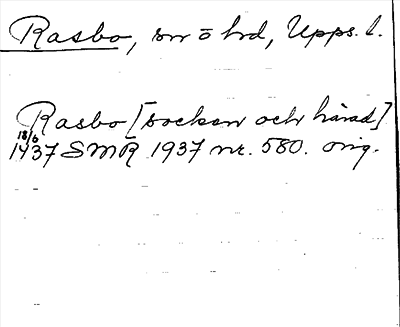 Rasbo, sn o hd, Upps. l.
Rasbo [socken och härad]
18/6
1437 SMR 1937 nr. 580. orig.